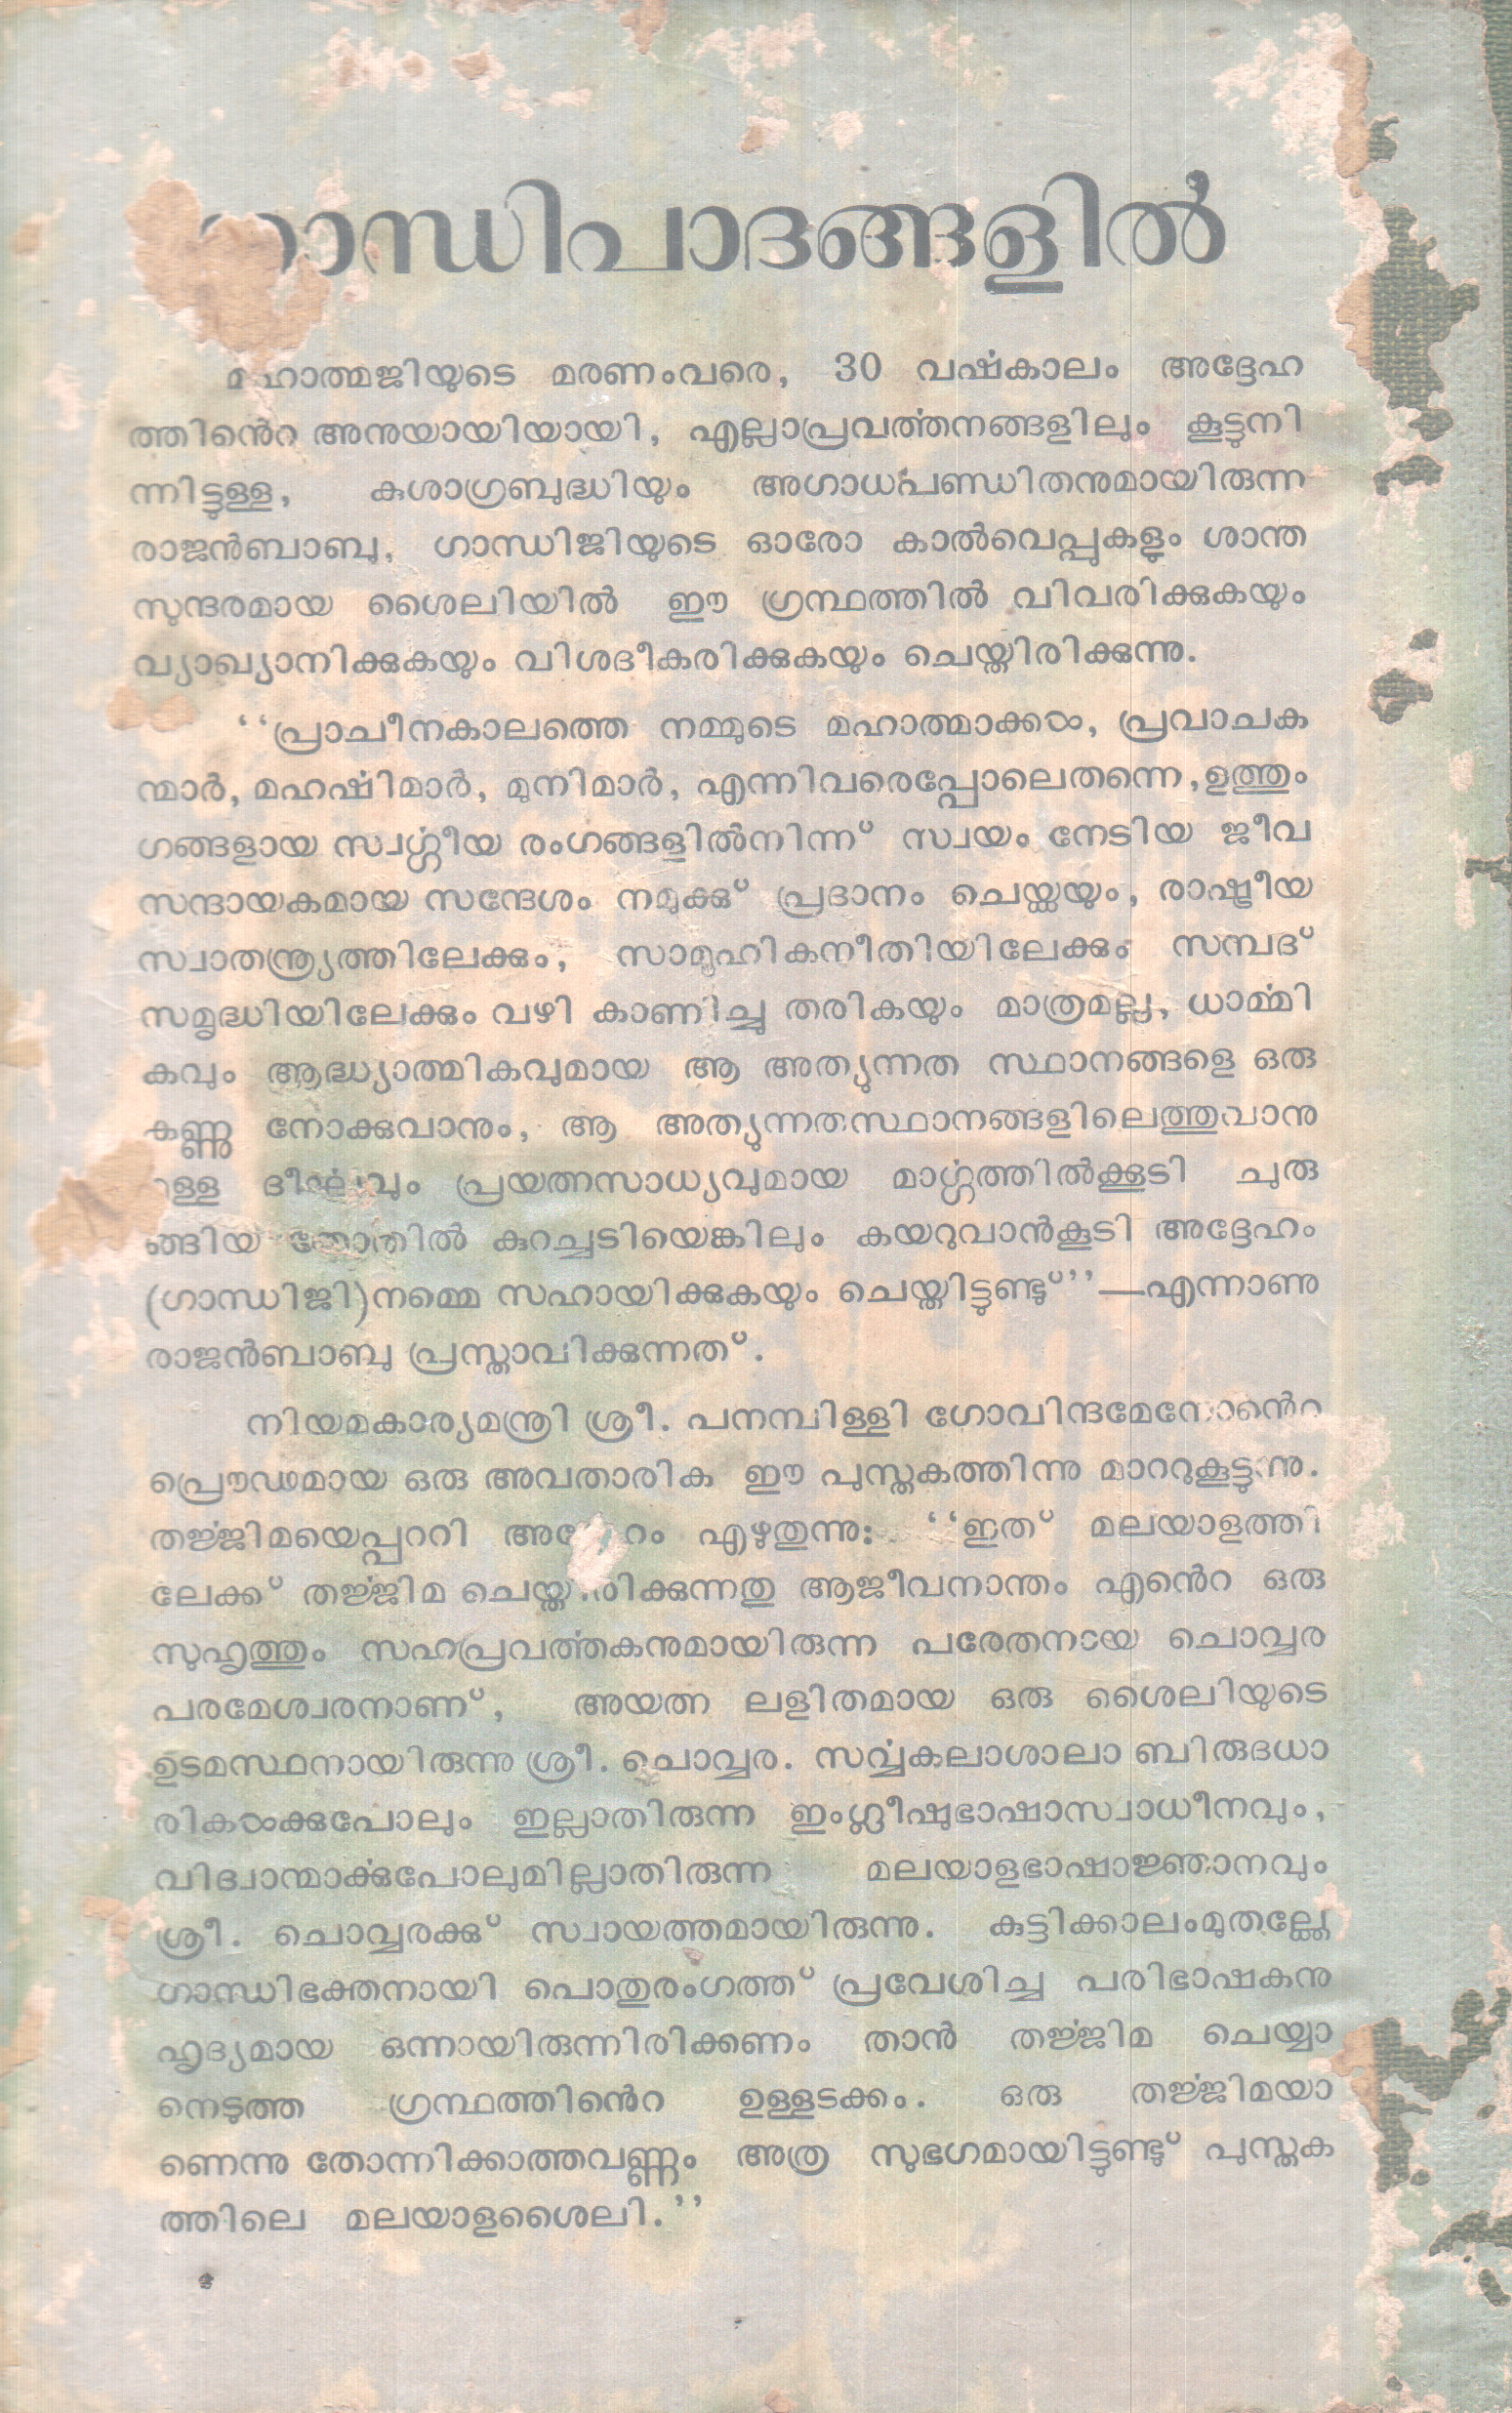 ഗാന്ധിപാദങ്ങളിൽ
മഹാത്മജിയുടെ മരണംവരെ, 30 വൎഷകാലം അദ്ദേഹ
ത്തിൻെറ അനുയായിയായി, എല്ലാപ്രവൎത്തനങ്ങളിലും കൂട്ടുനി
ന്നിട്ടുള്ള, കുശാഗ്രബുദ്ധിയും അഗാധപണ്ഡിതനുമായിരുന്ന
രാജൻബാബു, ഗാന്ധിജിയുടെ ഓരോ കാൽവെപ്പുകളും ശാന്ത
സുന്ദരമായ ശൈലിയിൽ ഈ ഗ്രന്ഥത്തിൽ വിവരിക്കുകയും
വ്യാഖ്യാനിക്കുകയും വിശദീകരിക്കുകയും ചെയ്തിരിക്കുന്നു.
‘‘പ്രാചീനകാലത്തെ നമ്മുടെ മഹാത്മാക്കൾ, പ്രവാചക
ന്മാർ, മഹൎഷിമാർ, മുനിമാർ, എന്നിവരെപ്പോലെതന്നെ, ഉത്തും
ഗങ്ങളായ സ്വൎഗ്ഗീയ രംഗങ്ങളിൽനിന്ന് സ്വയം നേടിയ ജീവ
സന്ദായകമായ സന്ദേശം നമുക്കു് പ്രദാനം ചെയ്കയും, രാഷ്ട്രീയ
സ്വാതന്ത്ര്യത്തിലേക്കും, സാമൂഹികനീതിയിലേക്കും സമ്പദ്
സമൃദ്ധിയിലേക്കും വഴി കാണിച്ചു തരികയും മാത്രമല്ല, ധാൎമ്മി
കവും ആദ്ധ്യാത്മികവുമായ ആ അത്യുന്നത സ്ഥാനങ്ങളെ ഒരു
കണ്ണു നോക്കുവാനും, ആ അത്യുന്നതസ്ഥാനങ്ങളിലെത്തുവാനു
ള്ള ദീൎഘവും പ്രയത്നസാധ്യവുമായ മാൎഗ്ഗത്തിൽക്കൂടി ചുരു
ങ്ങിയ തോതിൽ കുറച്ചടിയെങ്കിലും കയറുവാൻകൂടി അദ്ദേഹം
(ഗാന്ധിജി)നമ്മെ സഹായിക്കുകയും ചെയ്തിട്ടുണ്ടു്’’—എന്നാണു
രാജൻബാബു പ്രസ്താവിക്കുന്നത്.
നിയമകാര്യമന്ത്രി ശ്രീ. പനമ്പിള്ളി ഗോവിന്ദമേനോൻെറ
പ്രൌഢമായ ഒരു അവതാരിക ഈ പുസ്തകത്തിന്നു മാററുകൂട്ടുന്നു.
തൎജ്ജിമയെപ്പററി അദ്ദേഹം എഴുതുന്നു: ‘‘ഇത് മലയാളത്തി
ലേക്ക് തൎജ്ജിമ ചെയ്തിരിക്കുന്നതു ആജീവനാന്തം എൻെറ ഒരു
സുഹൃത്തും സഹപ്രവൎത്തകനുമായിരുന്ന പരേതനായ ചൊവ്വര
പരമേശ്വരനാണ്, അയത്ന ലളിതമായ ഒരു ശൈലിയുടെ
ഉടമസ്ഥനായിരുന്നു ശ്രീ. ചൊവ്വര. സൎവ്വകലാശാലാ ബിരുദധാ
രികൾക്കുപോലും ഇല്ലാതിരുന്ന ഇംഗ്ലീഷുഭാഷാസ്വാധീനവും,
വിദ്വാന്മാൎക്കുപോലുമില്ലാതിരുന്ന മലയാളഭാഷാജ്ഞാനവും
ശ്രീ. ചൊവ്വരക്കു് സ്വായത്തമായിരുന്നു. കുട്ടിക്കാലംമുതല്ക്കേ
ഗാന്ധിഭക്തനായി പൊതുരംഗത്ത് പ്രവേശിച്ച പരിഭാഷകനു
ഹൃദ്യമായ ഒന്നായിരുന്നിരിക്കണം താൻ തൎജ്ജിമ ചെയ്യാ
നെടുത്ത ഗ്രന്ഥത്തിൻെറ ഉള്ളടക്കം. ഒരു തൎജ്ജിമയാ
ണെന്നു തോന്നിക്കാത്തവണ്ണം അത്ര സുഭഗമായിട്ടുണ്ടു് പുസ്തക
ത്തിലെ മലയാളശൈലി.’’